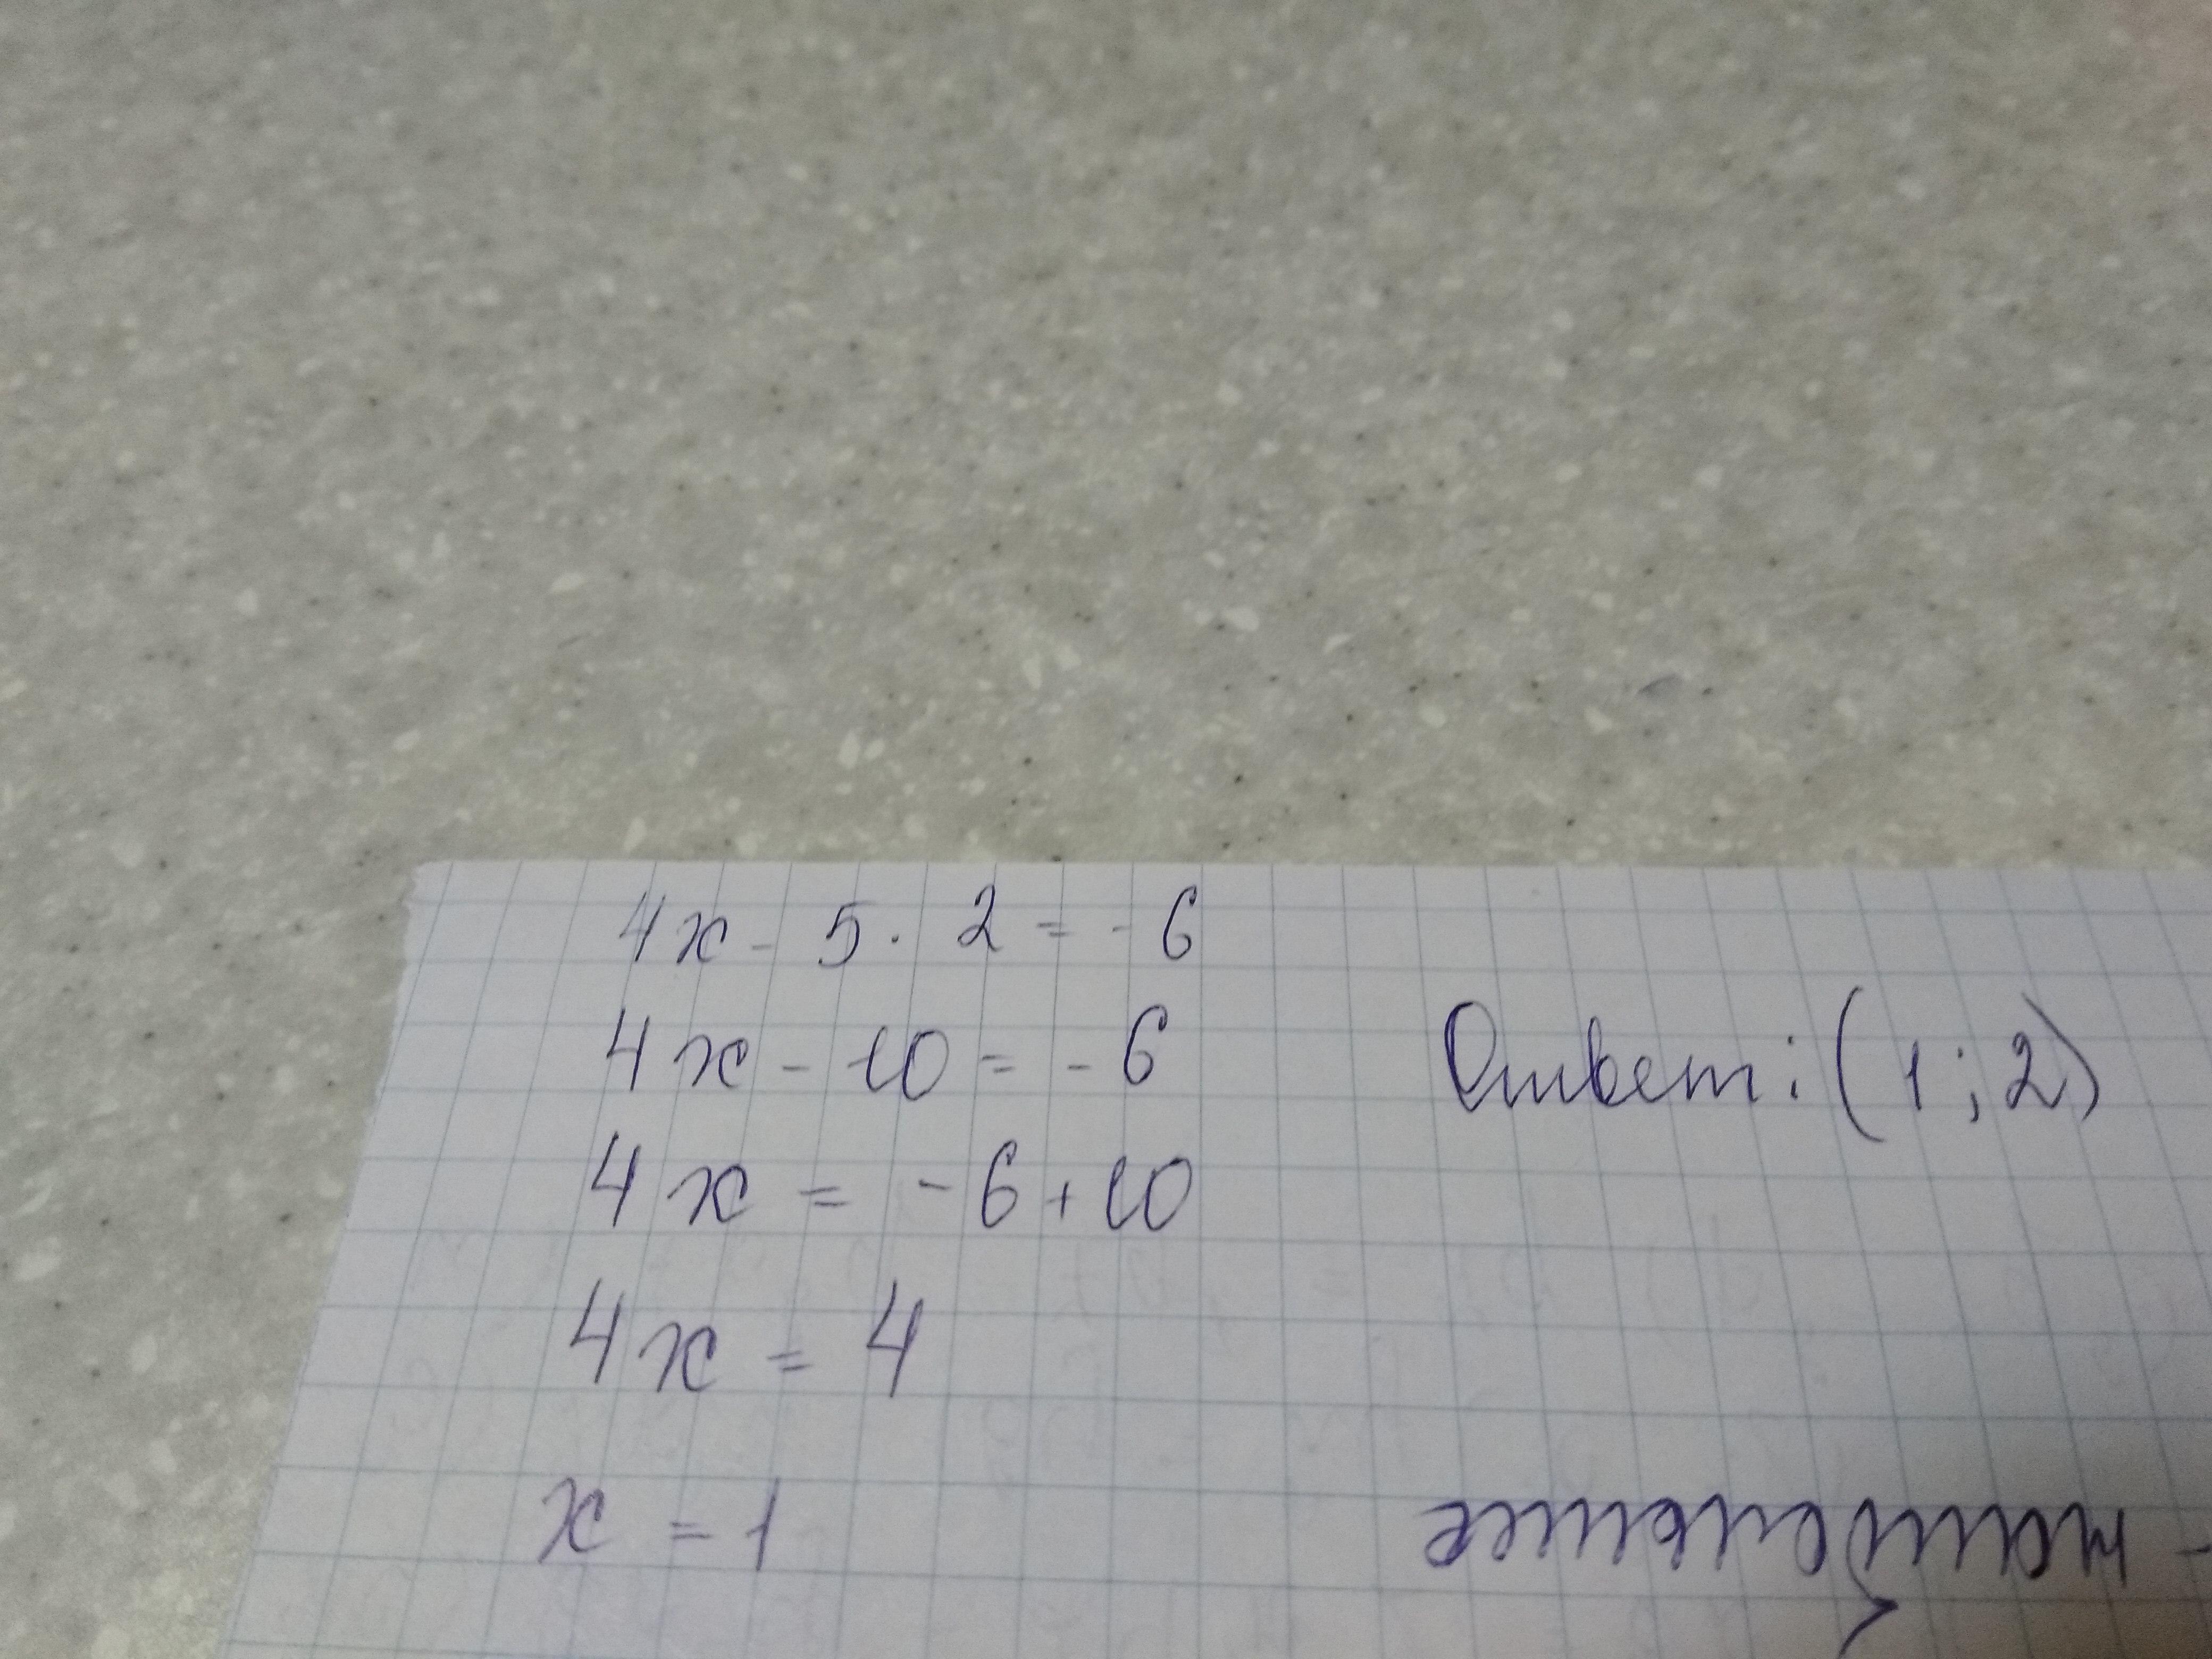 4x - 5 · 2 = - 6
4x - 10 = - 6
Ответ: (1; 2)
4x = - 6 + 10
4x = 4
x = 1